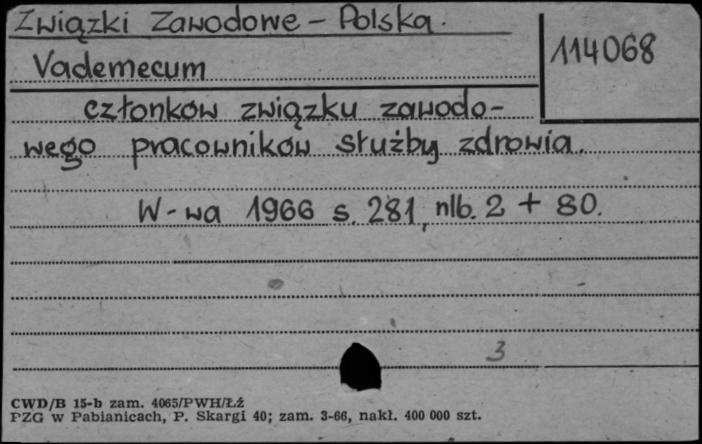 Związki Zawodowe - Polska.
Vademecum
114068
członków związku zawodo-
wego pracowników służby zdrowia.
W-wa 1966 s. 281, nlb. 2 + 80.
3
CWD/B 15-b zam. 4065/PWH/Łź
PZG w Pabianicach, P. Skargi 40; zam. 3-66, nakł. 400 000 szt.